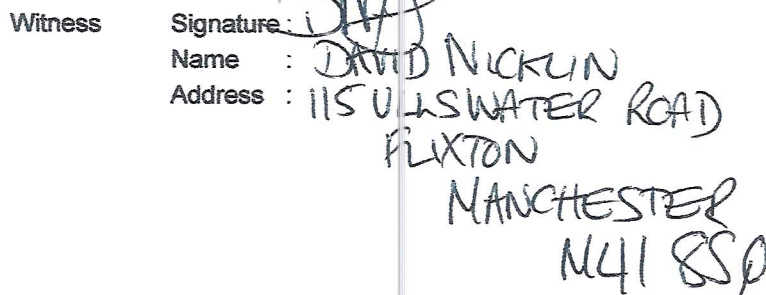 Witness Signature :
Name : DAVID NICKLIN
Address : 115 ULLSWATER ROAD
FLIXTON
MANCHESTER
M41